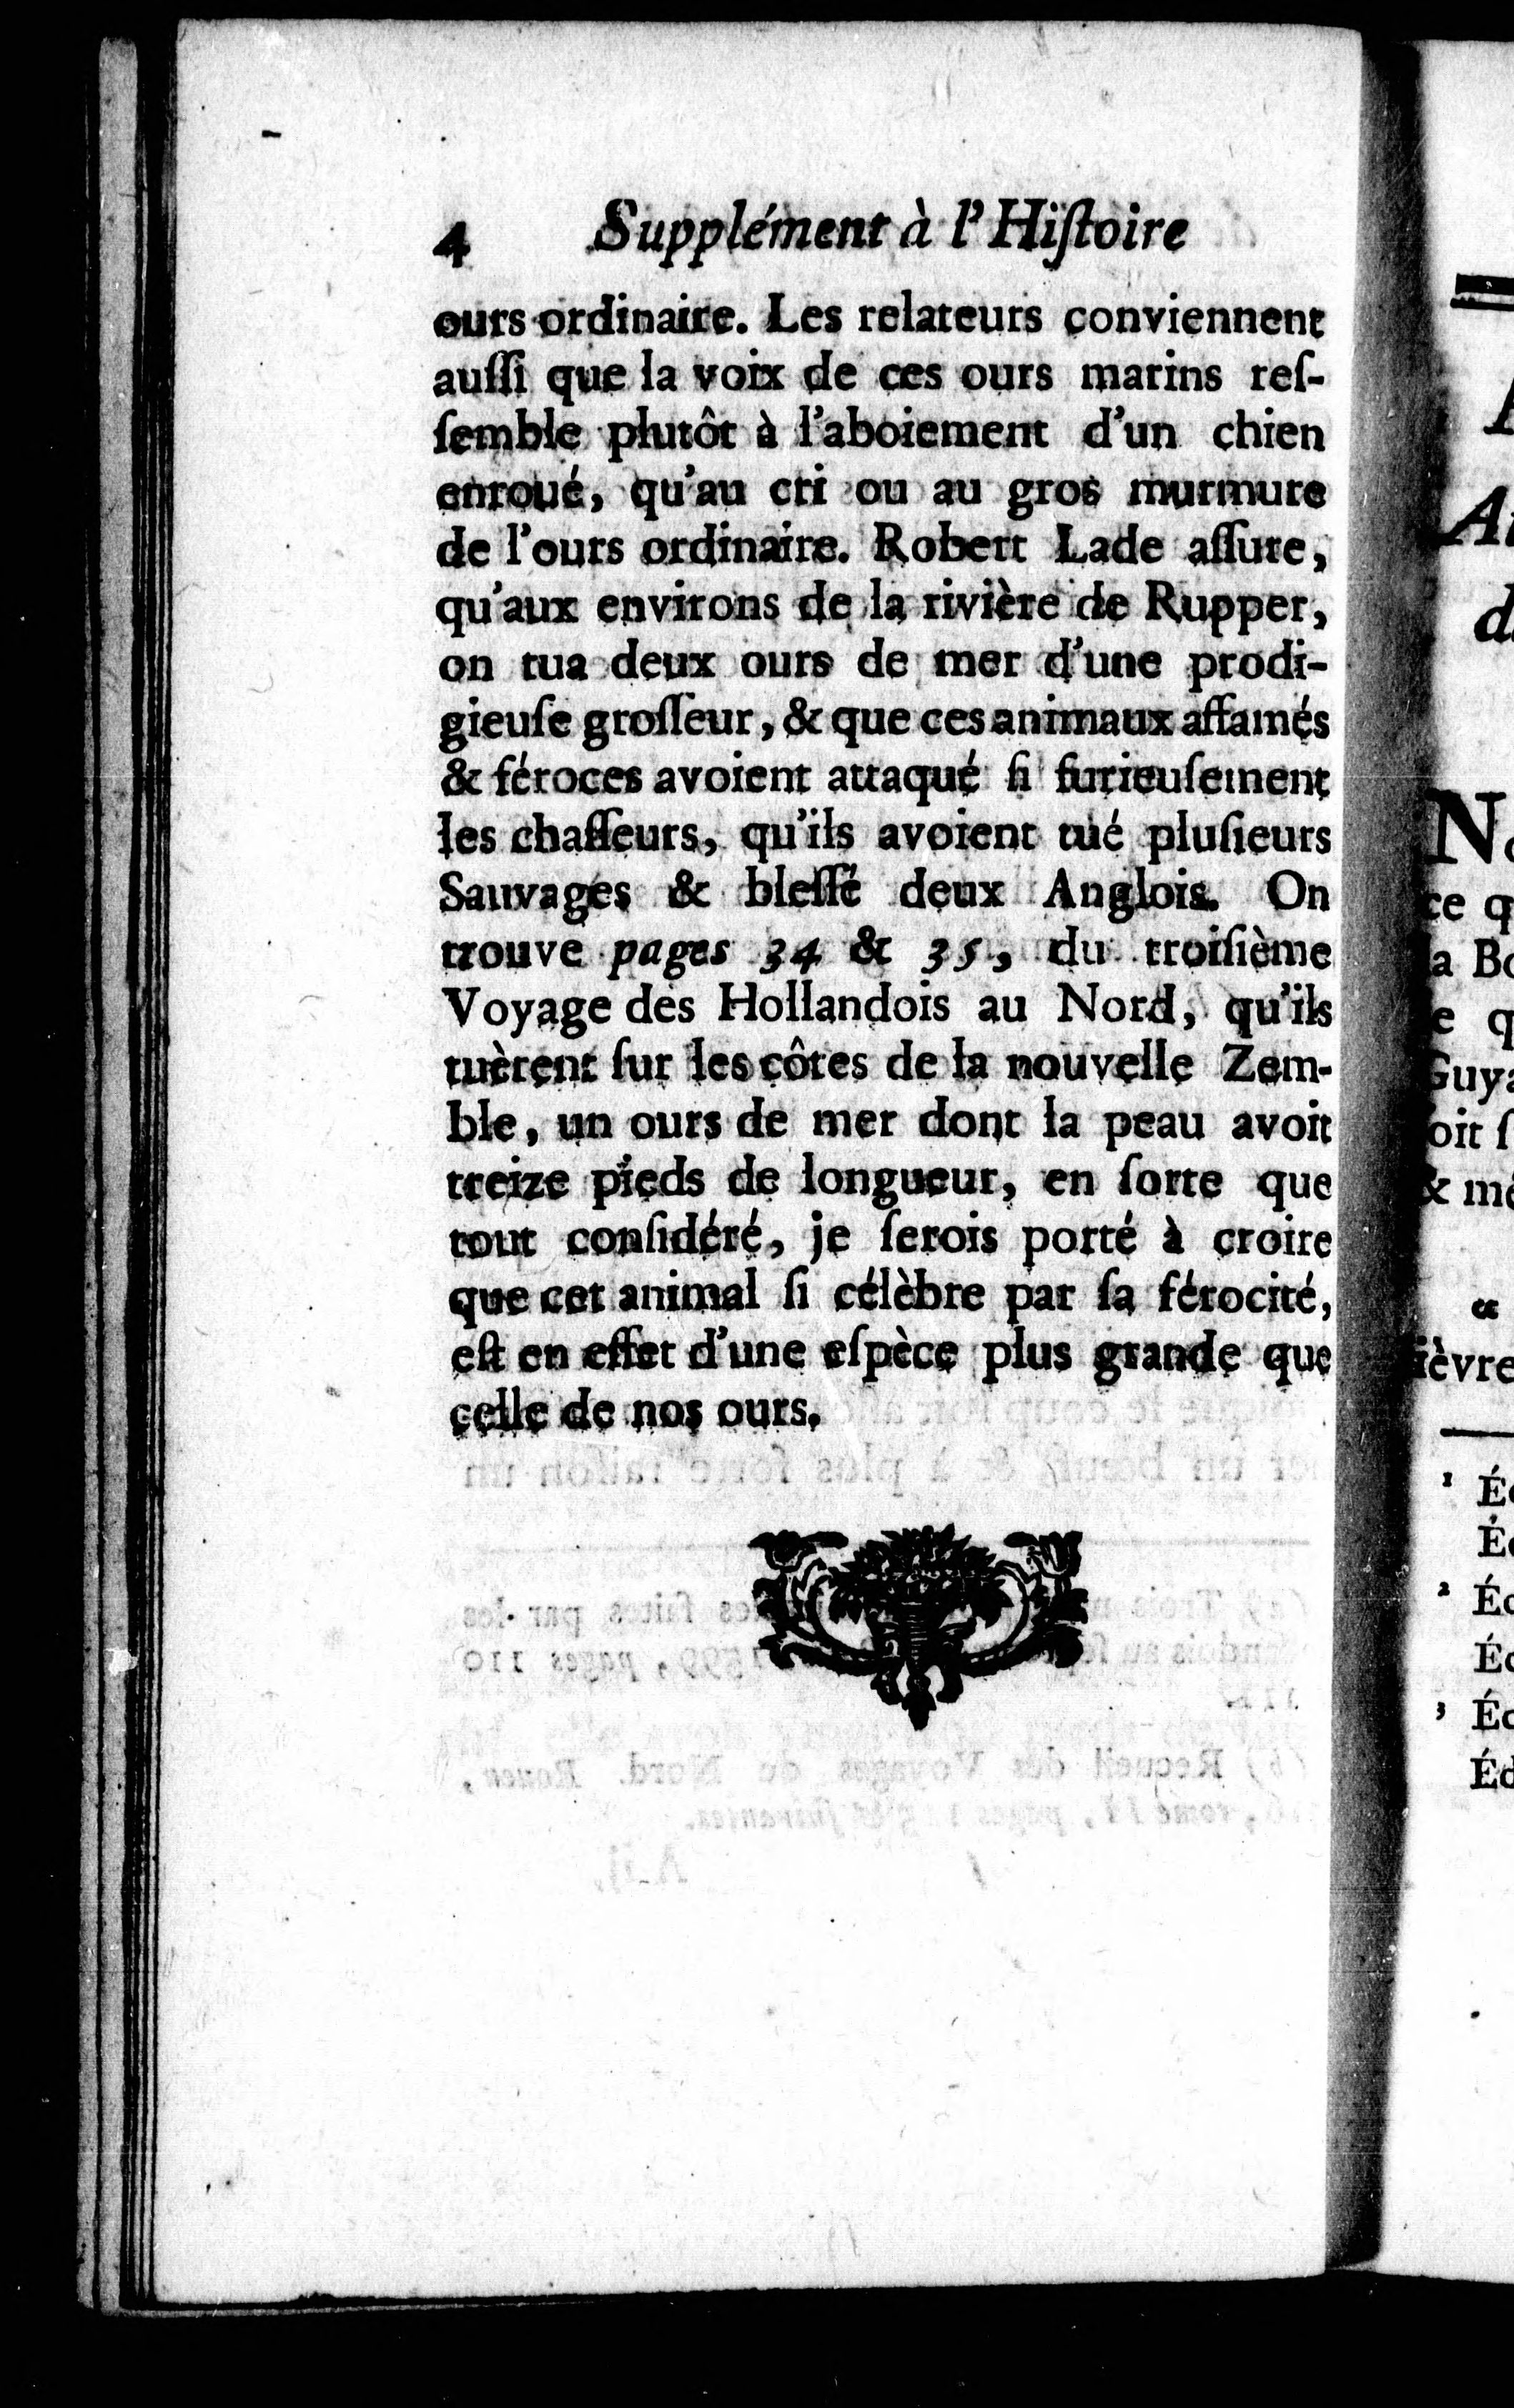 4 Supplément à l'Hiſtoire
ours ordinaire. Les relateurs conviennent
auſſi que la voix de ces ours marins reſ-
ſemble plutôt à l'aboiement d'un chien
enroué, qu'au cri ou au gros murmure
de l'ours ordinaire. Robert Lade aſſure,
qu'aux environs de la rivière de Rupper,
on tua deux ours de mer d'une prodi-
gieuſe groſſeur, & que ces animaux affamés
& féroces avoient attaqué ſi furieuſement
les chaſſeurs, qu'ils avoient tué pluſieurs
Sauvages & bleſſé deux Anglois. On
trouve pages 34 & 35, du troiſième
Voyage des Hollandois au Nord, qu'ils
tuèrent ſur les côtes de la nouvelle Zem-
ble, un ours de mer dont la peau avoit
treize pieds de longueur, en ſorte que
tout conſidéré, je ſerois porté à croire
que cet animal ſi célèbre par ſa férocité,
eſt en effet d'une eſpèce plus grande que
celle de nos ours.